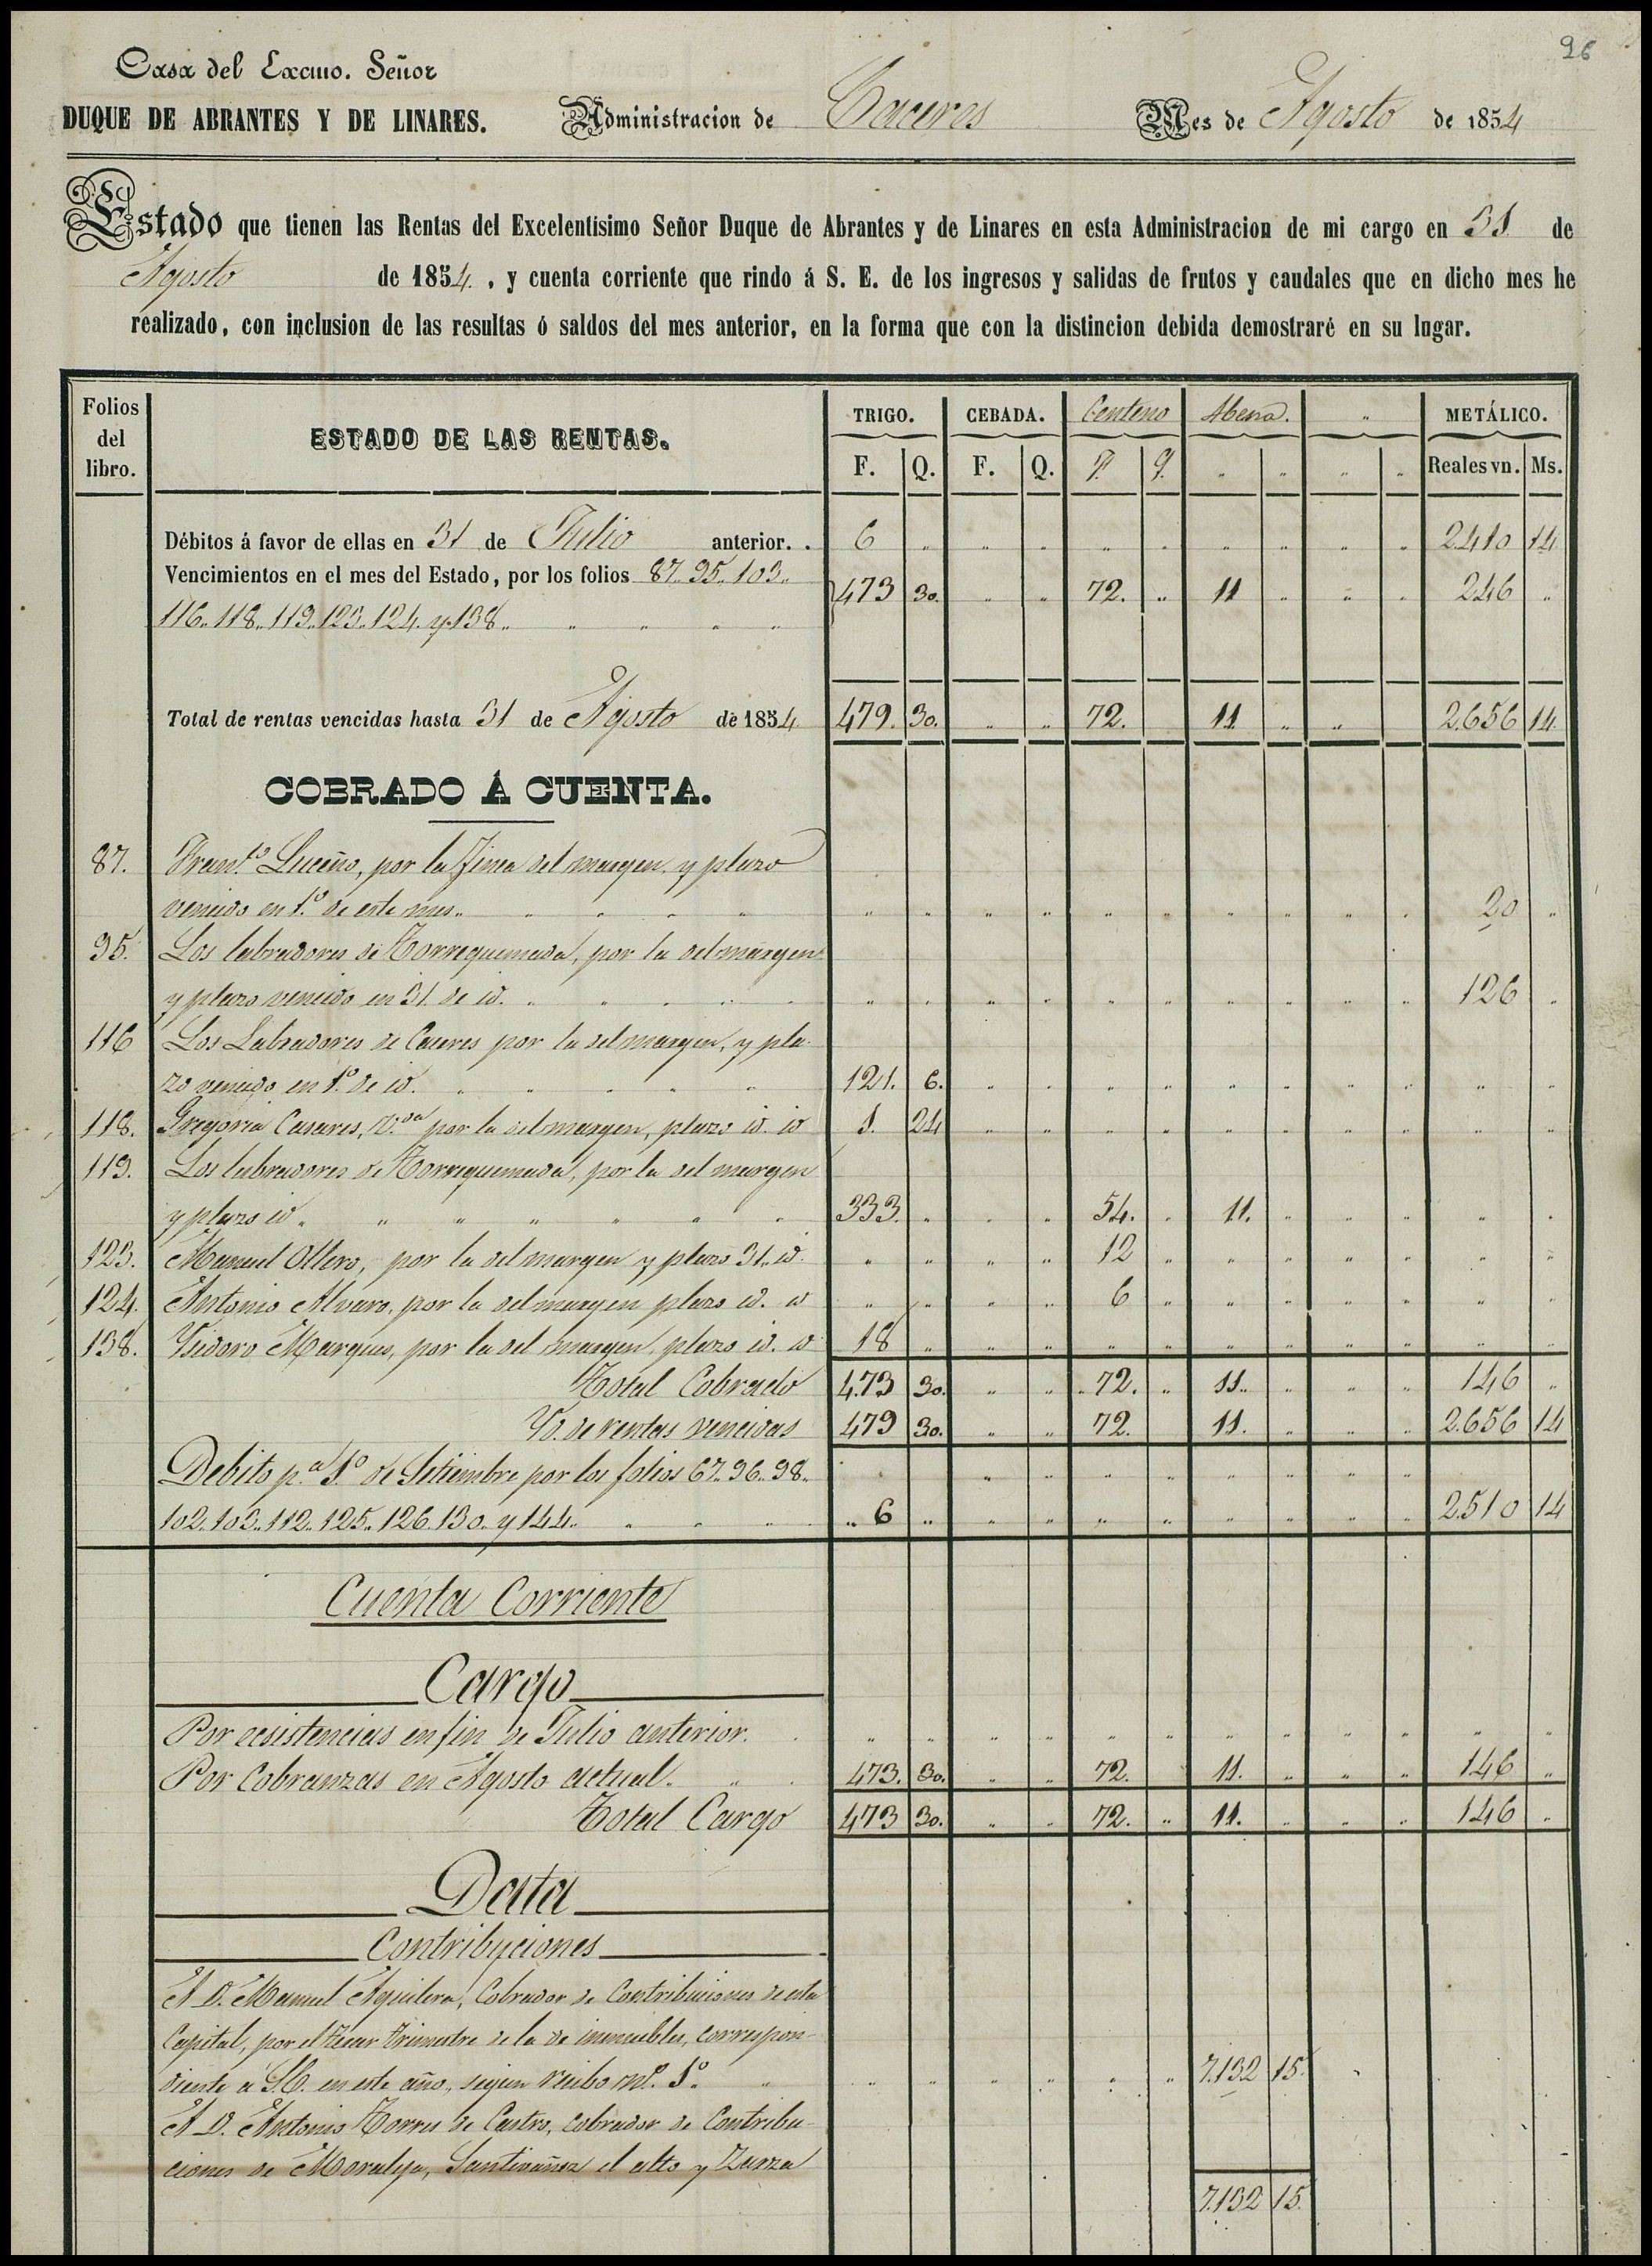 96
Casa del Excmo. Señor
DUQUE DE ABRANTES Y DE LINARES. Administracion de Caceres Mes de Agosto de 1854
Estado que tienen las Rentas del Excelentísimo Señor Duque de Abrantes y de Linares en esta Administracion de mi cargo en 31 de
Agosto de 1854. , y cuenta corriente que rindo á S. E. de los ingresos y salidas de frutos y caudales que en dicho mes he
realizado, con inclusion de las resultas ó saldos del mes anterior, en la forma que con la distincion debida demostraré en su lugar.
Folios del libro. ESTADO DE LAS RENTAS. TRIGO. CEBADA. Centeno Abena. " METÁLICO.
F. Q. F. Q. F. q. " " " " Reales vn. Ms.
Débitos á favor de ellas en 31 de Julio anterior. . 6 " " " " " " " " " 2410 14
Vencimientos en el mes del Estado, por los folios 87.. 95.. 103.. 473 30. " " 72. " 11 " " " 246 "
116.. 118.. 119.. 123.. 124. y 138.. " " " "
Total de rentas vencidas hasta 31 de Agosto de 1854. 479. 30. " " 72. 11 " " 2.656 14.
COBRADO Á CUENTA.
87. Franco. Luceño, por la finca del margen y plazo
vencido en 1.º de este mes.. " " " " " " " " " " " " " " 20 "
95. Los labradores de Torrequemada, por la del margen
y plazo vencido en 31. de id. " " " " " " " " " " " " " " 126 "
116 Los Labradores de Caceres por la del margen, y pla-
zo vencido en 1º de id. " " " " " 121. 6. " " " " " " " " " "
118. Gregoria Casares, V.da por la del margen, plazo id. id 1. 24 " " " " " " " " " "
119. Los labradores de Torrequemada, por la del margen
y plazo id. " " " " " " 333. " " " 54. " 11. " " " " "
123. Manuel Ollero, por la del margen y plazo 31. id. " " " " 12 " " " " " " "
124. Antonio Alvaro, por la del margen plazo id. id " " " " 6 " " " " " " "
138. Ysidoro Marques, por la del margen, plazo id. id 18 " " " " " " " " " " "
Total Cobrado 473 30. " " 72. " 11.. " " " 146 "
Yd. de rentas vencidas 479 30. " " 72. 11. " " " 2.656 14
Debito p.ª 1º de Setiembre por los folios 67.. 96.. 98.. " " " " " " " "
102. 103.. 112.. 125.. 126. 130. y 144. " " " " 6 " " " " " " " " " 2.510 14
Cuenta Corriente
Cargo
Por ecsistencias en fin de Julio anterior. " " " " " " " " " " " "
Por Cobranzas en Agosto actual. " " 473. 30. " " 72. 11. " " " 146 "
Total Cargo 473 30. " " 72. " 11. " " " 146 "
Data
Contribuciones
A D. Manuel Aguilera, Cobrador de Contribuciones de esta
Capital, por el tercer trimestre de la de inmuebles, correspon-
diente á S.E. en este año, según recibo nº. 1º. " " " " " " " 7.132 15.
A D. Antonio Torres de Castro, cobrador de Contribu-
ciones de Moraleja, Santivañez el alto y Zarza
7.132 15.